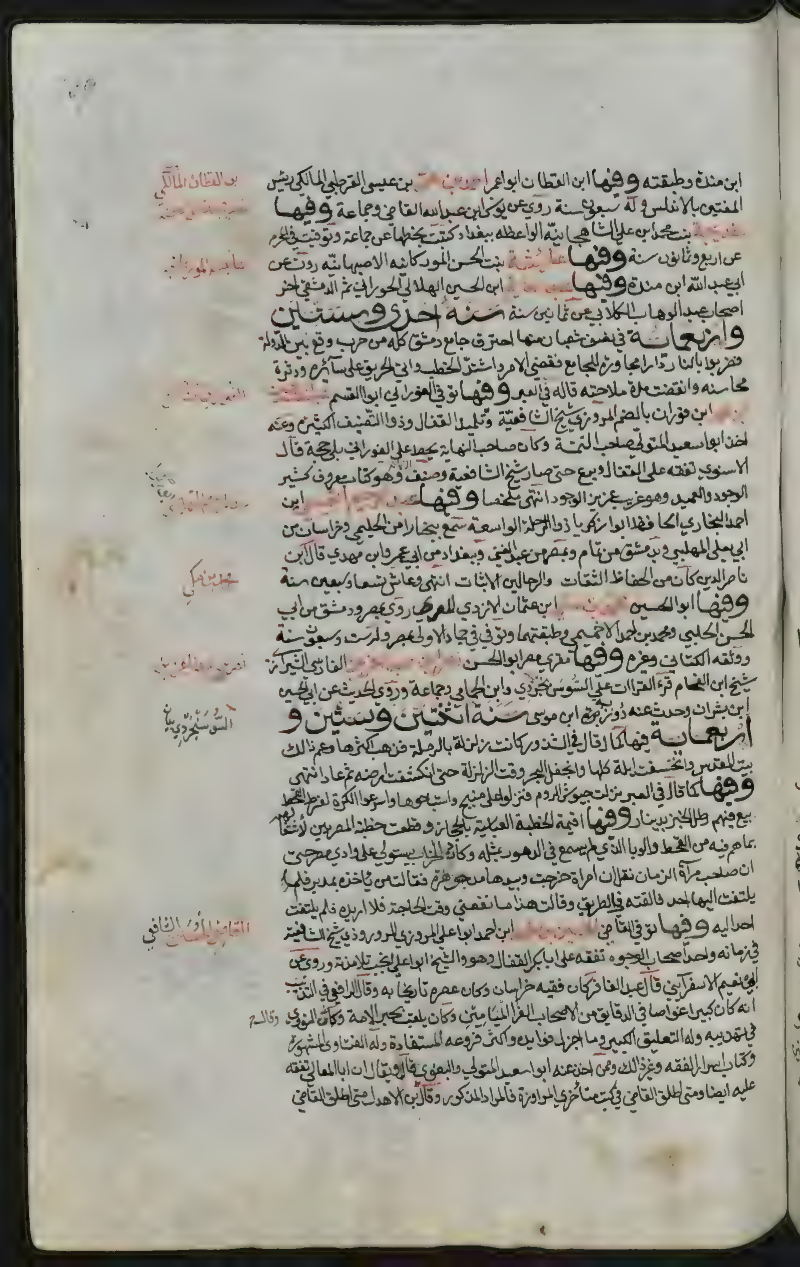 ابن مندة وطبقته وفيها ابن القطان ابو عمر احمد بن محمد بن عيسى القرطبي المالكي رئيس
المفتين بالاندلس وله سبعون سنة روى عن يونس ابن عبدالله القاضي وجماعة وفيها
خديجة بنت محمد ابن علي الشاهجانية الواعظه ببغداد كتبت بخطها عن جماعة وتوفيت في المحرم
عن اربع وثمانون سنة وفيها عايشة بنت الحسن الموركانية الاصبهانية روت عن
ابي عبد الله ابن مندة وفيها ابن الحسين الهلالي الحوراني ثم الدمشقي اخر
اصحاب عبدالوهاب الكلابي عن ثمانين سنة سنة احدى وستين
واربعمائة في نصف شعبان منها احترق جامع دمشق كله من حرب وقع بين الدولة
فضربوا بالنار دارا مجاورة للجامع فقضي الامر واشتد الخطب واتى الحريق على سائره ودثرة
محاسنه وانقضت مدة ملاحته قاله في العبر وفيها توفي الفوراني ابو القسم
ابن فوران بالضم المروزي شيخ الشافعية وتلميذ القفال وذو التصنيف الكثيرة وعنه
اخذ ابو سعيد المتولي صاحب التتمة وكان صاحب النهاية يحط على الفوراني بلا حجة قال
الاسنوي تفقه على القفال وبرع حتى صار شيخ الشافعية وصنف وهو كتاب معروف كثير
الوجود والعميد وهو غريب عزيز الوجود انتهى ملخصا وفيها ابن
احمد البخاري الحافظ ابو زكريا ذو الرحلة الواسعة سمع ببخارا من الحليمي وخراسان من
ابي يعلى المهلبي وبدمشق من تمام وبمصر من عبد الغني وببغداد من ابي عمر وابن مهدي قال ابن
ناصر الدين كان من الحفاظ الثقات والرحالين الاثبات انتهى وعاش تسعا وسبعين سنة
وفيها ابو الحسين ابن عثمان الازدي المصري روى بمصر ودمشق من ابي
الحسن الحلبي ومحمد بن احمد الاخميمي وطبقتهما وتوفي في جماد الاولى بمصر وله ست وسبعون سنة
ووثقه الكتاني وغيره وفيها مقري مصر ابو الحسن نصر بن عبد العزيز الفارسي الشيرازي
شيخ ابن الفحام قرء القراات على السوسنجردي وابن الحمامي وجماعة وروى الحديث عن ابي الحسين
ابن بشران وحدث عنه ابن موسى سنة اثنتين وستين و
اربعمائة فيها كما قال في الشذور كانت زلزلة بالرملة فذهب اكثرها وعم ذالك
بيت المقدس وانخسفت ايلة كلها وانجفل البحر وقت الزلزلة حتى انكشفت ارضه ثم عاد انتهى
وفيها كما قال في العبر نزلت جيوش الروم فنزلوا على منبج واستباحوها واسرعوا الكرة لفرط القحط
بيع فيهم رطل الخبز بدينار وفيها اقيمة الخطبة العباسية بالحجاز وقطعت خطبة المصريين لاشتغالهم
بما هم فيه من القحط والوبا الذي لم يسمع في الدهور بمثله وكاد الخراب يستولي على وادي مصر حتى
ان صاحب مرآة الزمان نقل ان امراة خرجت وبيدها مد جوهر فقالت من ياخذه بمد بر فلم
يلتفت اليها احد فالقته في الطريق وقالت هذا ما نفعني وقت الحاجة فلا اريده فلم يلتفت
احد اليه وفيها توفي القاضي الحسين بن محمد ابن احمد ابو علي المروزي المروروذي شيخ الشافعية
في زمانه واحد اصحاب الوجوه تفقه على ابا بكر القفال وهو والشيخ ابو علي انجب تلامذته وروى عن
ابي نعيم الاسفرآيني قال عبد الغافر كان فقيه خراسان وكان عصره تاريخا به وقال الرافعي في التذنيب
انه كان كبيرا غواصا في الدقايق من الاصحاب الغر الميامين وكان يلقب بحبر الامة وقال النووي
في تهذيبه وله التعليق الكبير وما اجزل فوايده واكثر فروعه المستفادة وله الفتاوى المشهورة
وكتاب اسرار الفقه وغير ذالك وممن اخذ عنه ابو اسعيد المتولي والبغوي قال ويقال ان ابا المعالي تفقه
عليه ايضا ومتى اطلق القاضي في كتب متاخري المراوزة فالمراد المذكور وقال ابن الاهدل متى اطلق القاضي
بن القطان المالكي
السوسنجردي بيان
القاضي الحسين الشافعي